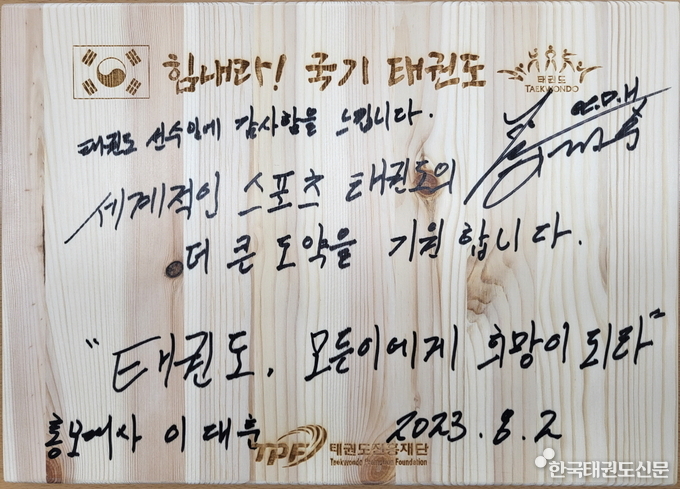 힘내라! 국기 태권도
태권도
TAEKWONDO
태권도 선수임에 감사함을 느낍니다.
세계적인 스포츠 태권도의
더 큰 도약을 기원합니다.
"태권도, 모든이에게 희망이 되라"
홍보대사 이대훈 2023. 8. 2
TPF 태권도진흥재단
Taekwondo Promotion Foundation
한국태권도신문